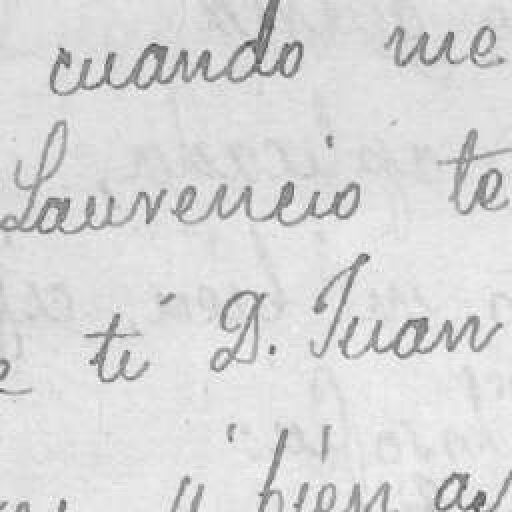 cuando me
Laurencio te
ti D. Juan
y bien